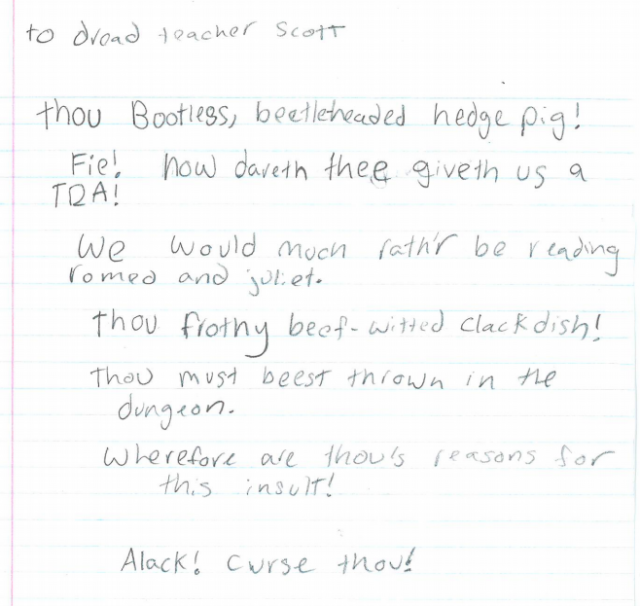 to dread teacher Scott
thou Bootless, beetleheaded hedge pig!
Fie! how dareth thee giveth us a
TDA!
We would much rath'r be reading
romeo and juliet.
thou frothy beef-witted clackdish!
Thou must beest thrown in the
dungeon.
Wherefore are thou's reasons for
this insult!
Alack! Curse thou!